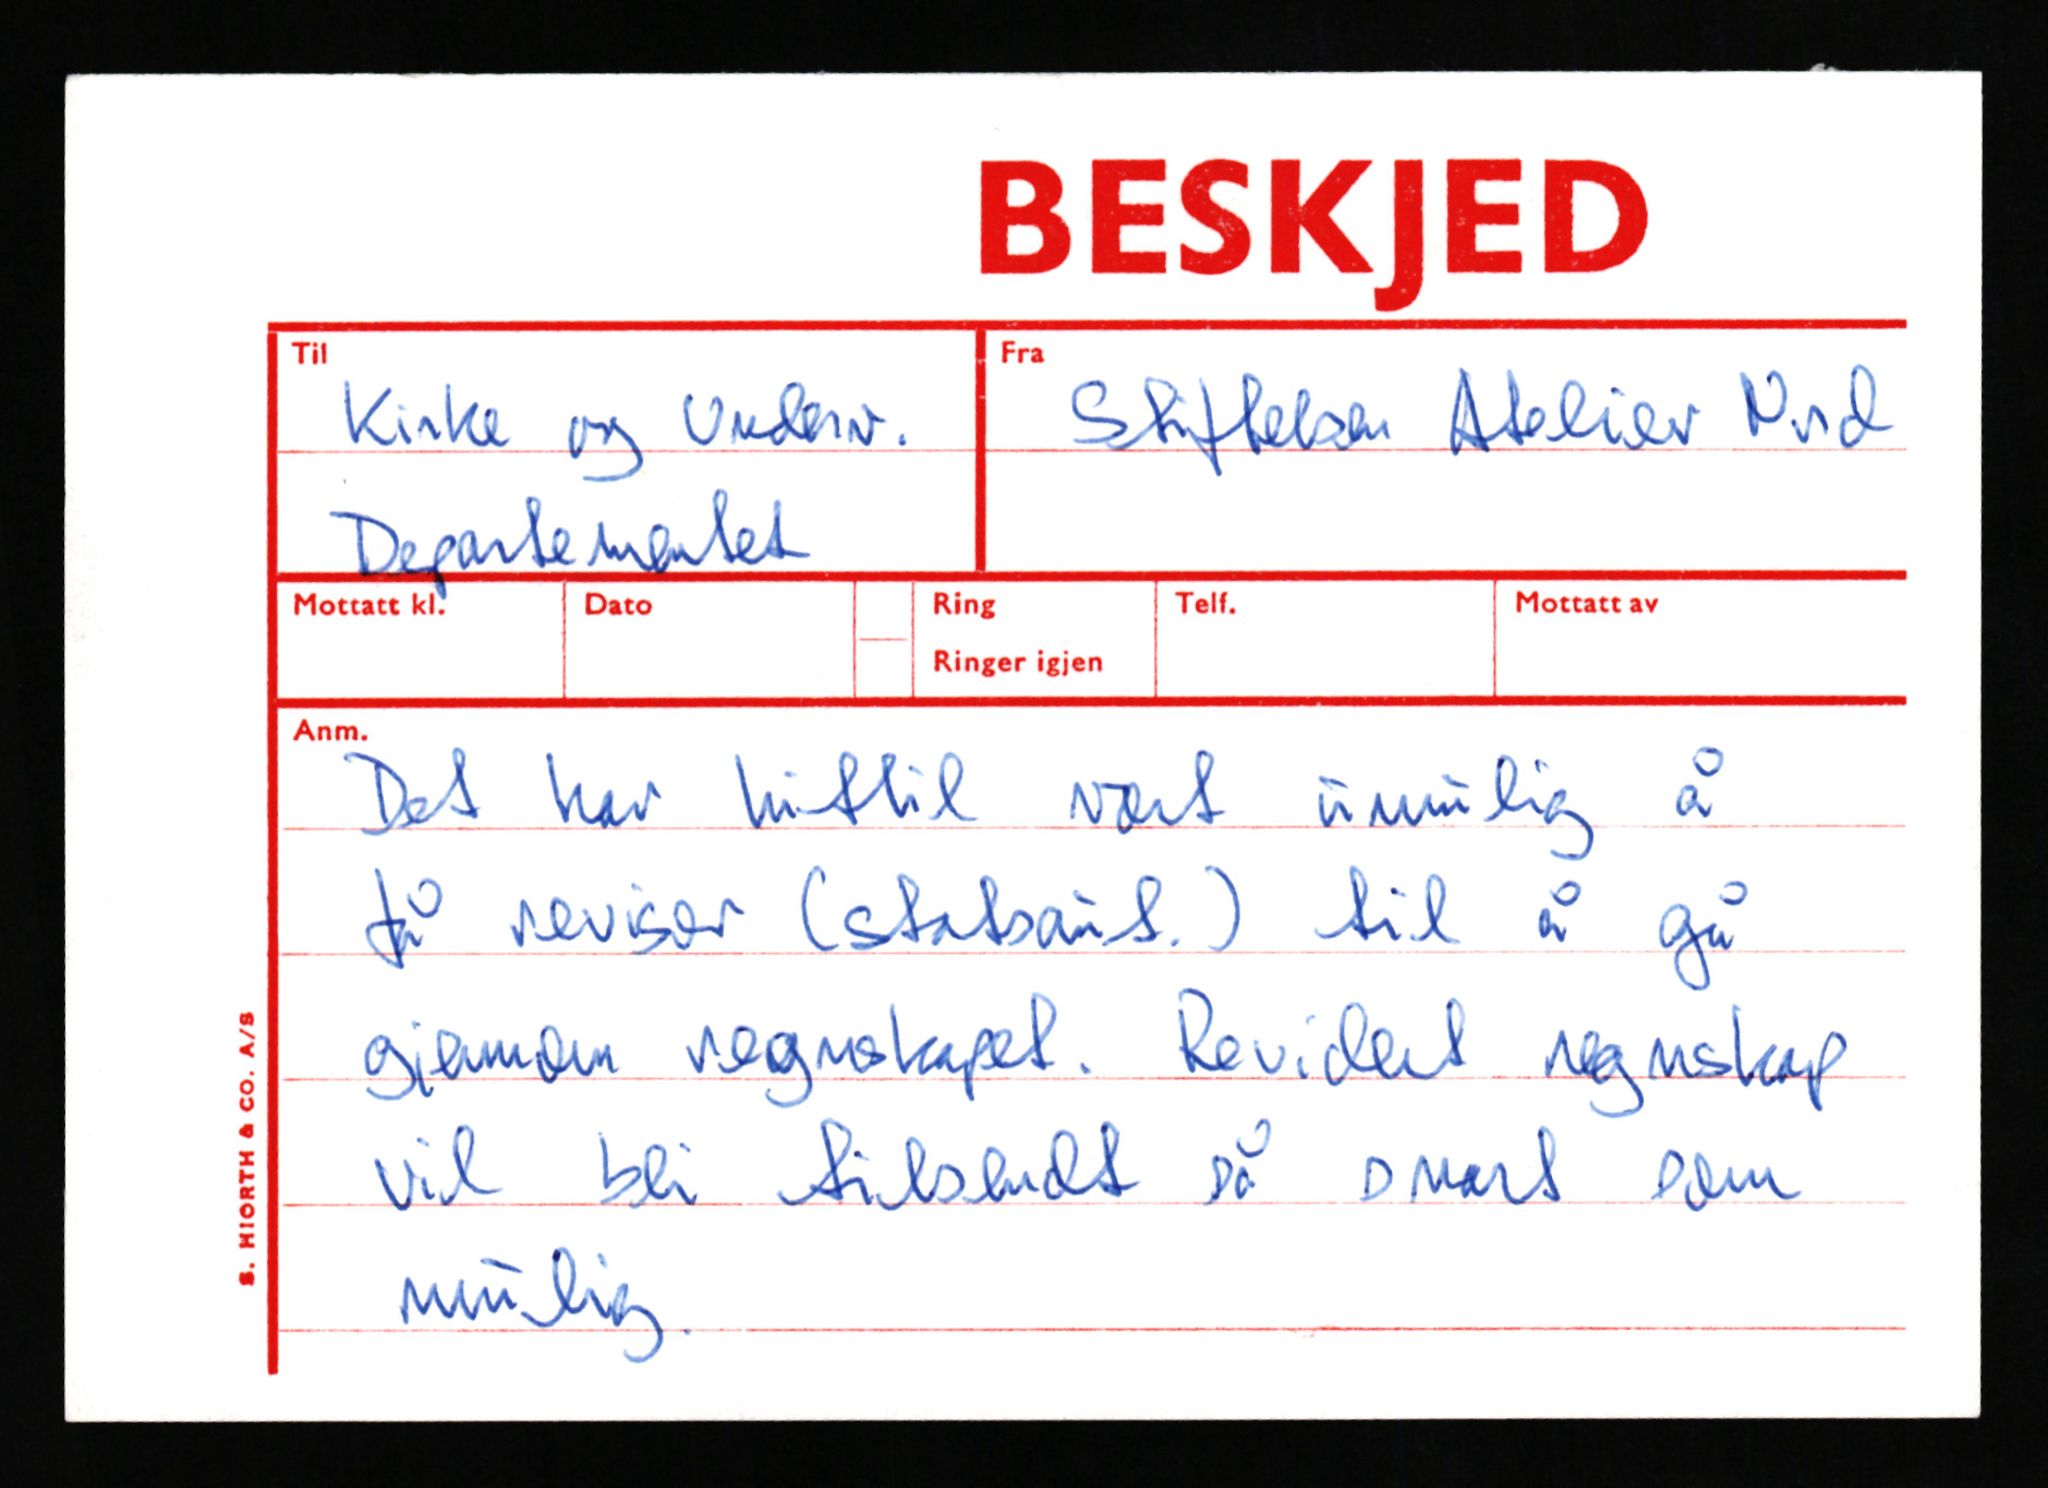 BESKJED
Til
Fra
Kirke og Underv.
Stiftelsen Atelier Nord
Departementet
Mottatt kl.
Dato
Ring
Telf.
Mottatt av
Ringer igjen
Anm.
Det har hittil vært umulig å
få revisor (statsaut.) til å gå
gjennom regnskapet. Revidert regnskap
vil bli tilsendt så snart som
mulig.
S. HIORTH & CO. A/S